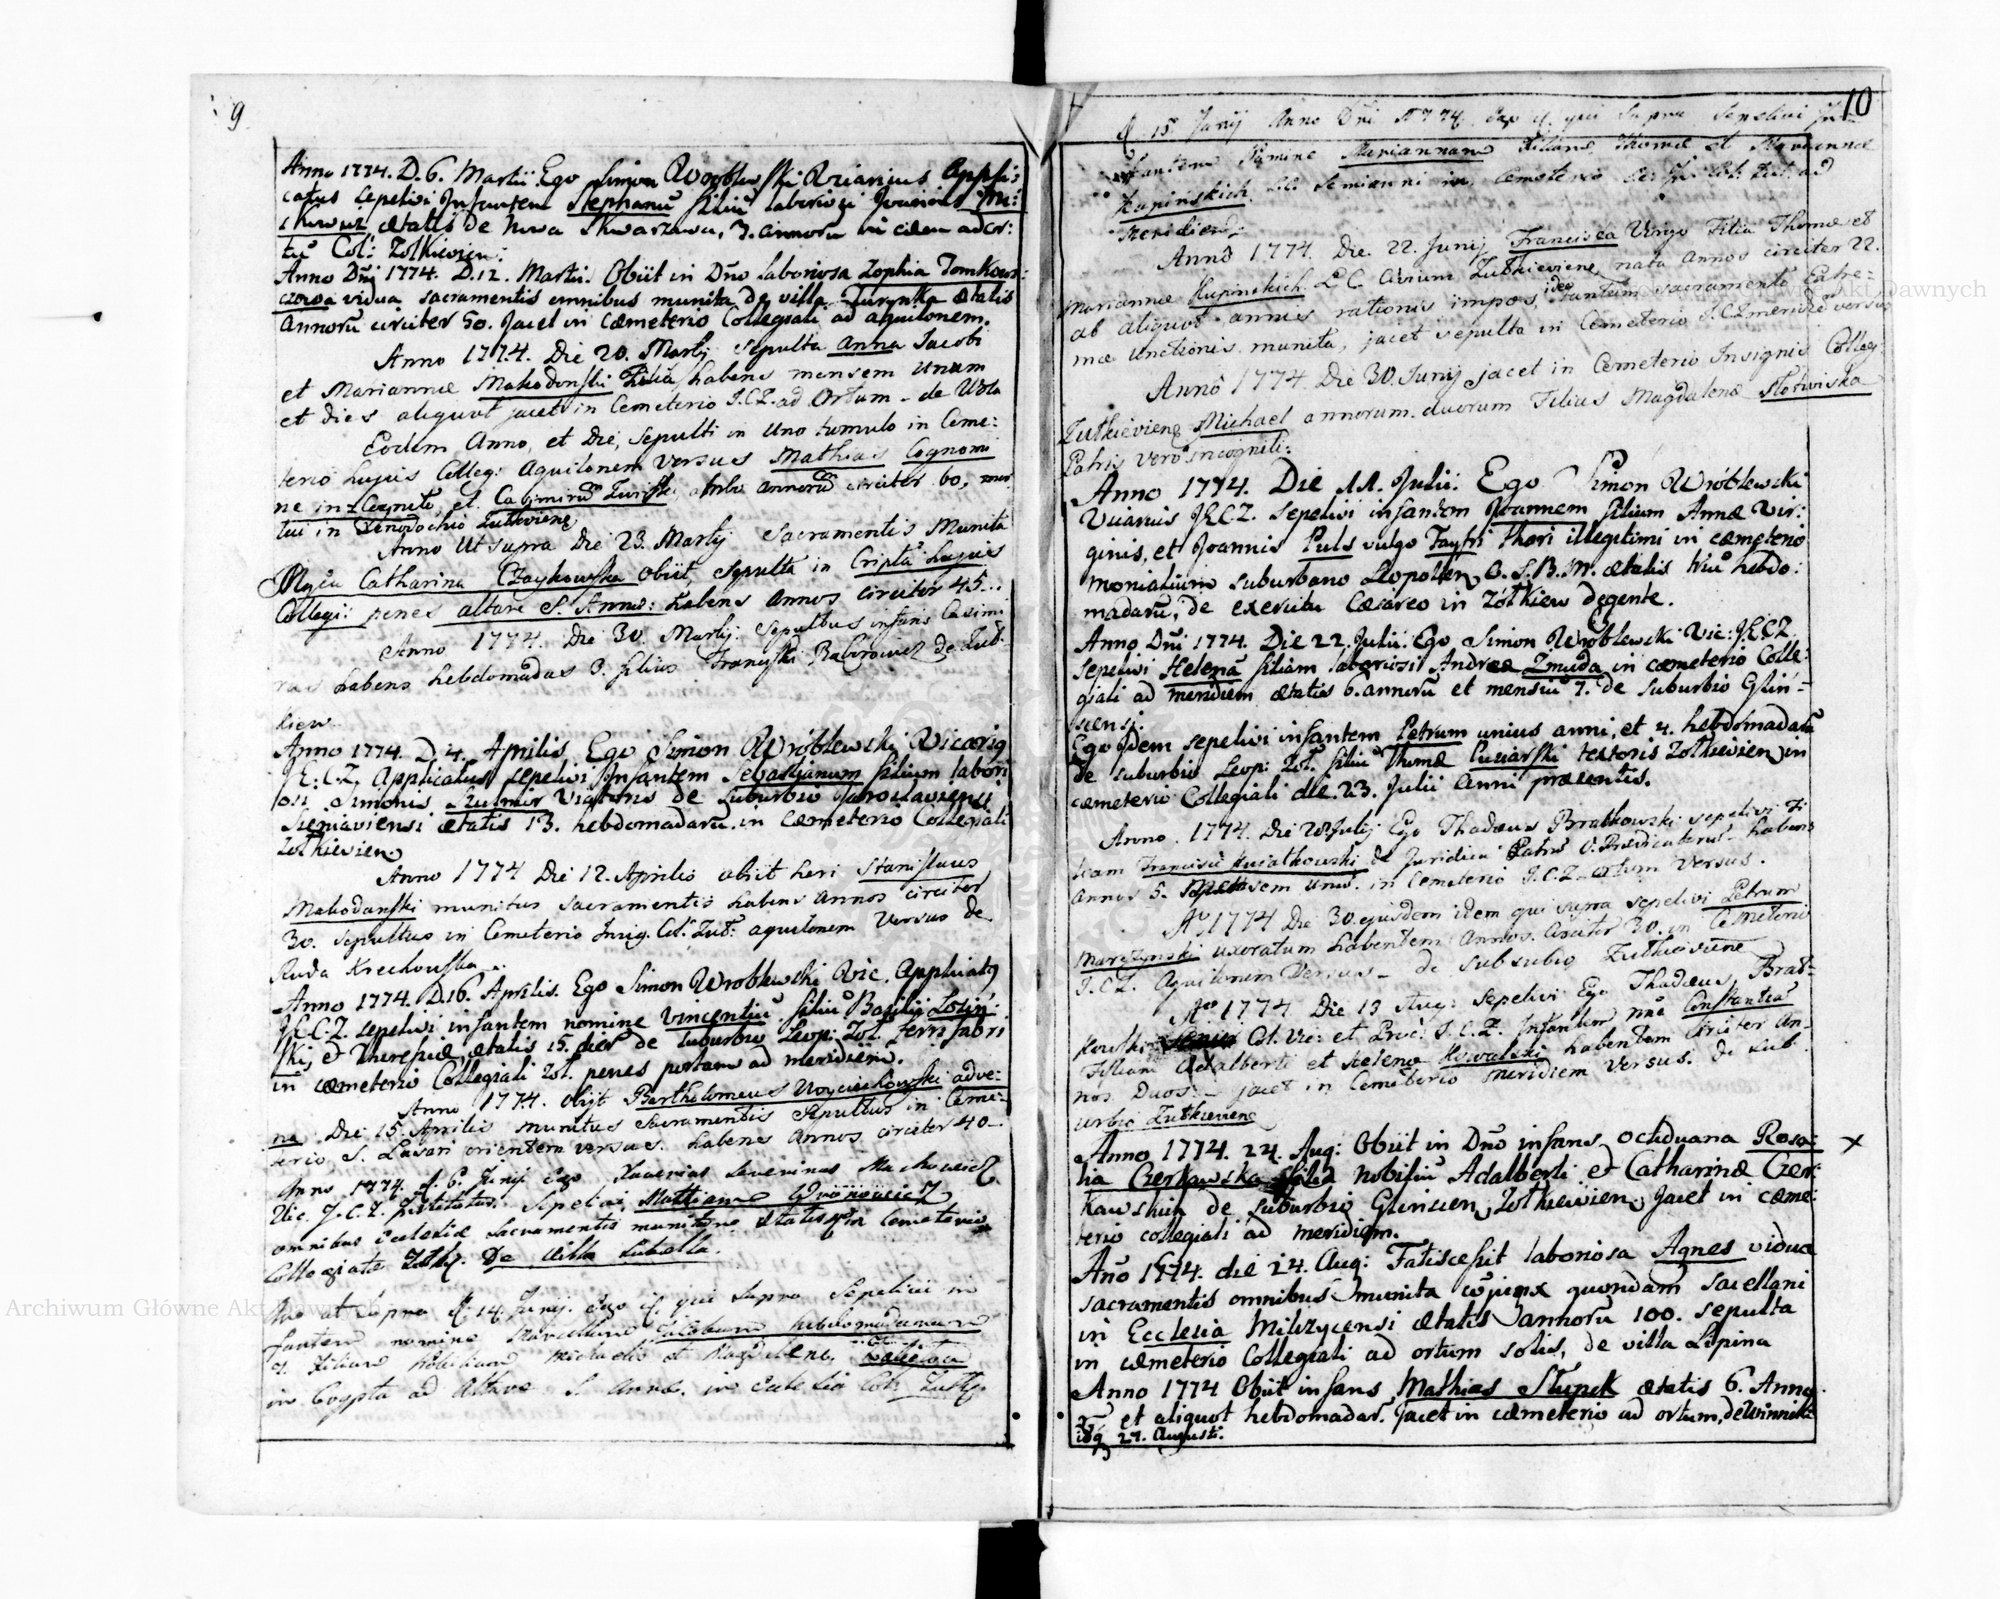 9
Anno 1774. D. 6. Martii Ego Simon Wroblewski Vicarius Appli:
catus sepelivi Infantem Stephanū filiū laboriosi Joannis
ætatis de Nowa Skwarzawa, 3. annorū in cæm ad or:
tū Col: Zolkievien:
Anno Dn̄i 1774. D. 12. Martii Obiit in Dn̄o laboriosa Zophia Tomkow:
czowa vidua sacramentis omnibus munita de villa Turynka ætatis
Annorū circiter 50. Jacet in cæmeterio Collegiali ad aquilonem.
Anno 1774. Die 20. Martij sepulta Anna Jacobi
et Mariannæ Makodonski Filia habens mensem unum
et dies aliquot jacet in Cemeterio I.C.Z. ad Ortum - de Wola
Eodem Anno, et Die, sepulti in Uno tumulo in Ceme:
terio hujus Colleg: Aquilonem versus Mathias Cognomi
ne incognito, et Casimirus Turski ambo annorū circiter 60, mor
tui in Xenodochio Zutkiviene
Anno Ut supra Die 23. Martij Sacramentis Munita
Mgca Catharina Czaykowska Obiit, sepulta in Cripta hujus
Collegi: penes altare S. Annæ: habens Annos circiter 45...
Anno 1774. Die 30. Martij. Sepultus infans Casim
rus habens hebdomadas 3. filius Franciski de Zub
kiew
Anno 1774. D 4. Aprilis Ego Simon Wróblewski Vicarig
I.C.Z. Applicatus sepelivi Infantem Sebastianum filium labori
osi Simonis Kusznir Viatoris de suburbio Jaroslaviensi
Sieniaviensi ætatis 13. hebdomadarū in cæmeterio Collegiali
Zolkievien
Anno 1774 Die 12. Aprilis obiit heri Stanislaus
Makodanski munitus sacramentis habens Annos circiter
30. sepultus in Cemeterio Insig. Col. Zut: aquilonem Versus de
Ruda Krechowska.
Anno 1774. D. 16. Aprilis. Ego Simon Wroblewski Vic. Applicatg
I.C.Z. sepelivi infantem nomine Vincentiū filiū Basilii Losin
ski, et Theresiæ, ætatis 15. dierū de suburbio Leop: Zol. ferri fabri
in cæmeterio Collegiali Zol. penes portam ad meridiem.
Anno 1774. obijt Bartholomeus Woyciechowski adve:
na Die 15. Aprilis munitus Sacramentis Sepultus in Ceme:
terio S. Lasari orientem versus. habens Annos circiter 40
Anno 1774. d. 6. Junij Ego Xaverius Severinus Machowicz
Vic. I.C.Z. sepelivi Mathiam
omnibus Ecclesiæ Sacramentis munitum ætatis in Cemeterio
Collegiate Zolk. De villa Lubella.
Ano ut supra d. 14. Junij. Ego qui supra Sepelivi in
fantem nomine Marcellum Jacobum hebdomadarum
9. Filium Michaelis et Magdalenæ
in Crypta ad Altare S. Annæ. in Ecclesia Col. Zutk.
10
d. 15. Junij Anno Dn̄i 1774. Ego qui Supra Sepelivi In
fantem Nomine Mariannam Filiam Thomæ et Mariannæ
Kupinskich semianni in Cemeterio ad
meridiem.
Anno 1774. Die 22. Junij Francisca Virgo Filia Thomæ et
Mariannæ Kupinskich L.C. Civium Zutkieviene, nata annos circiter 22.
ab aliquot annis rationis impos, ideo tantum sacramento Extre:
mæ Unctionis munita, jacet sepulta in Cemeterio I.C.Z. meridiē versus
Anno 1774. Die 30. Junij jacet in Cemeterio Insignis Colleg:
Zutkieviene Michael annorum duorum Filius Magdalenæ Slotwiska
Patris vero incogniti:
Anno 1774. Die 11. Julii. Ego Simon Wróblewski
Vicarius I.C.Z. sepelivi infantem Joannem filium Annæ Vir:
ginis, et Joannis Puls vulgo Tayfri thori illegitimi in cæmeterio
monialium suburbano Leopolien. O.S.B.M. ætatis triū hebdo:
madarū, de exercitu Cæsareo in Zólkiew degente.
Anno Dn̄i 1774. Die 22. Julii. Ego Simon Wroblewski Vic: I.C.Z.
sepelivi Helenā filiam laboriosi Andreæ Zmuda in cæmeterio Colle:
giali ad meridiem ætatis 6. annorū et mensiū 7. de suburbio Glin-
scensi.
Ego Idem sepelivi infantem Petrum unius anni, et 4. hebdomadarū
de suburbio Leop: Zol. filiū Thomæ textoris Zolkievien in
cæmeterio Collegiali die. 23. Julii anni præsentis.
Anno. 1774. Die 28 Julij Ego Thadæus Bratkowski sepelivi Fi
liam Francisci Kwiatkowski de Juridica Patrū O. Prædicatorū habens
annos 5. mensem Unū. in Cemeterio I.C.Z. ortum versus.
Ao 1774 Die 30. ejusdem idem qui supra sepelivi Petrum
Marszynski uxoratum habentem Annos Circiter 30. in Cemeterio
I.C.Z. Aquilonem Versus - de suburbio Zutkieviene
Ao 1774 Die 13 Aug: sepelivi Ego Thadæus Brat-
kowski Col. Vic: et Proc: I.C.Z. Infantem nn̄e Constantiā
Filiam Adalberti et Helenæ Kowalski habentem Circiter An-
nos Duos - jacet in Cemeterio meridiem versus. de sub
urbio Zutkieviene
Anno 1774. 24. Aug: Obiit in Dn̄o infans octiduana Rosa: x
lia Czerkawska filia nobiliū Adalberti et Catharinæ Czer:
kawskich de suburbio Glinscien, Zolkievien. Jacet in cæme:
terio collegiali ad meridiem.
An̄o 1774. die 24. Aug: Fatiscessit laboriosa Agnes vidua
sacramentis omnibus munita cōjunx quondam sacellani
in Ecclesia Milzycensi ætatis annorū 100. sepulta
in cæmeterio Collegiali ad ortum solis, de villa Lipina
Anno 1774 Obiit infans Mathias Slupek ætatis 6. Anno
et aliquot hebdomadar. Jacet in cæmeterio ad ortum, de Winnik:
27. Augusti.
Archiwum Główne Akt Dawnych